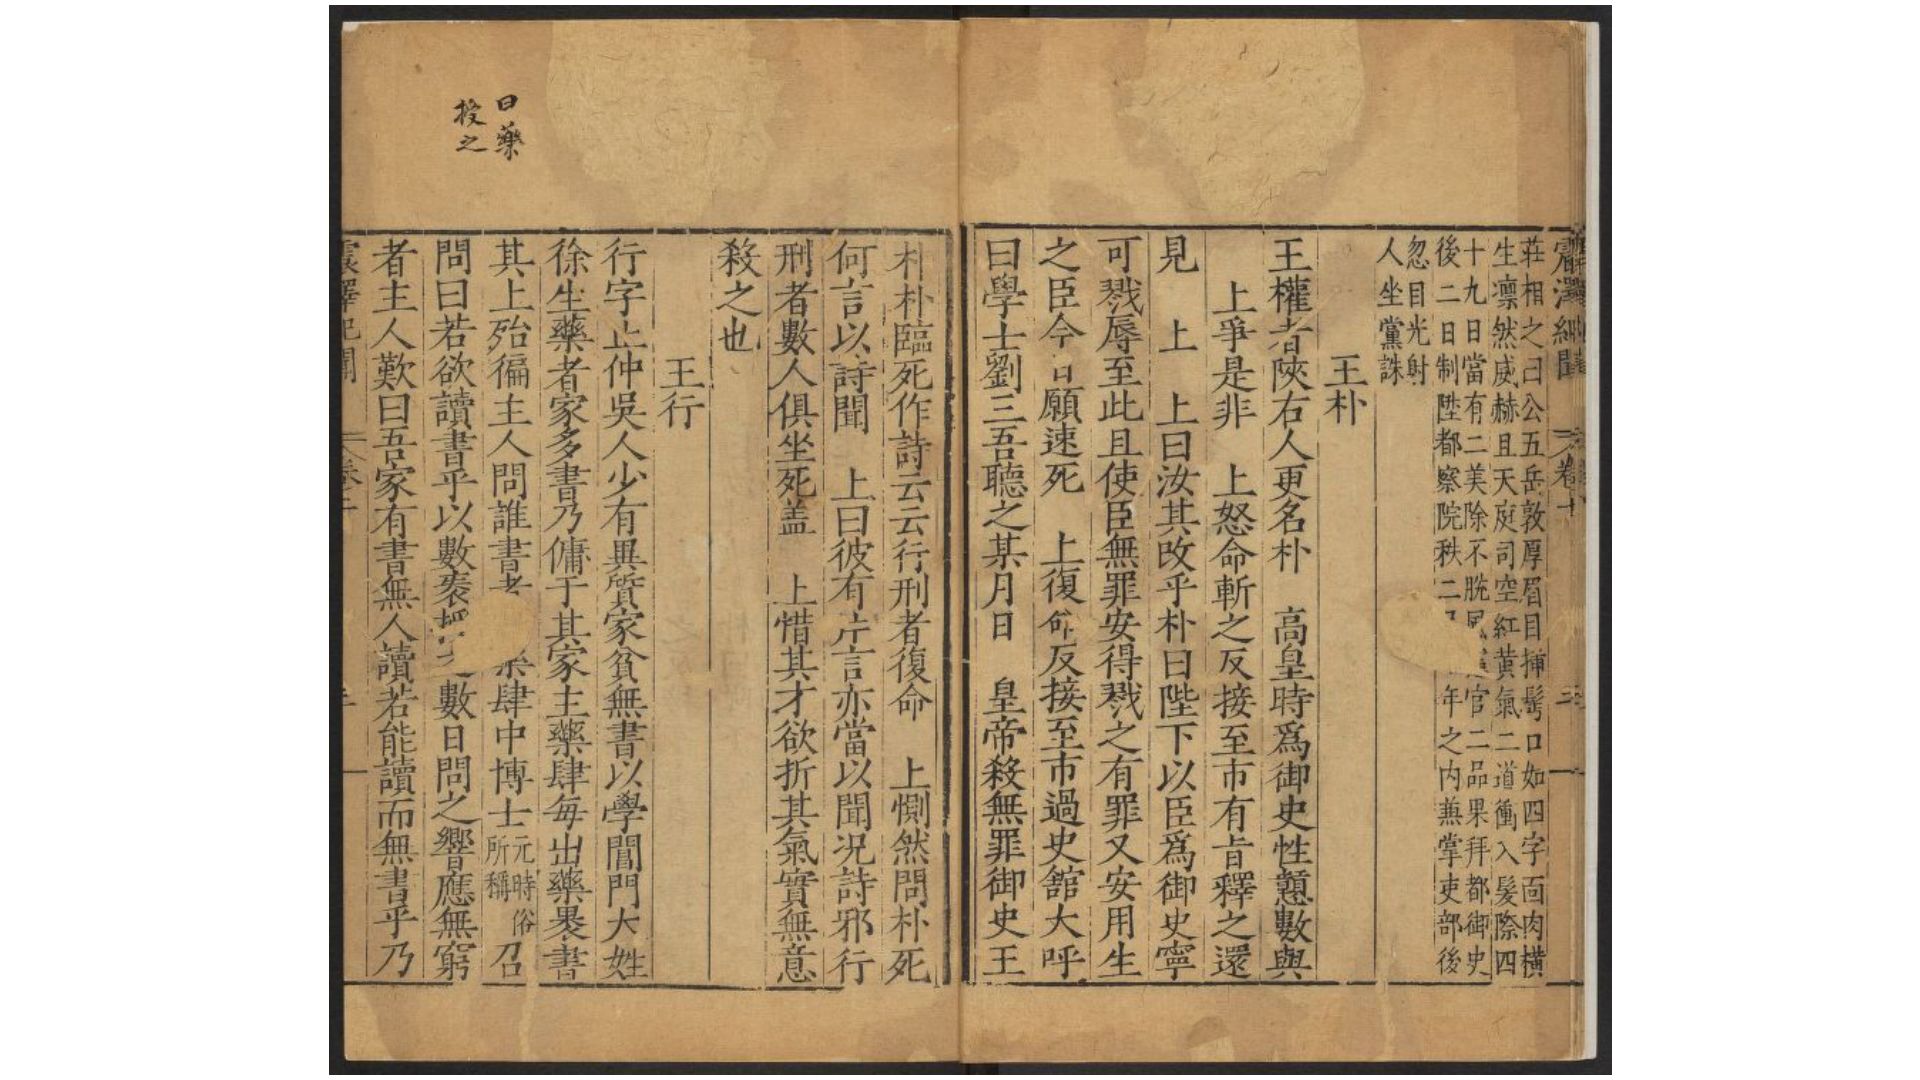 震澤紀聞 卷十 三 一
莊相之曰公五岳敦厚眉目揷髩口如四字面肉橫
生凛然威赫且天庭司空紅黃氣二道衝入髮際四
十九日當有二美除不脫風憲官二品果拜都御史
後二日制陞都察院秩二年之内兼掌吏部後
忽目光射
人坐黨誅
王朴
王權者陝右人更名朴 高皇時爲御史性戇數與
上爭是非 上怒命斬之反接至市有旨釋之還
見 上 上曰汝其改乎朴曰陛下以臣爲御史寧
可戮辱至此且使臣無罪安得戮之有罪又安用生
之臣今日願速死 上復命反接至市過史舘大呼
曰學士劉三吾聽之某月日 皇帝殺無罪御史王
朴朴臨死作詩云云行刑者復命 上惻然問朴死
何言以詩聞 上曰彼有片言亦當以聞况詩邪行
刑者數人俱坐死盖 上惜其才欲折其氣實無意
殺之也
王行
行字止仲吳人少有異質家貧無書以學閶門大姓
徐生藥者家多書乃傭于其家主藥肆每出藥褁書
其上殆徧主人問誰書者藥肆中博士元時俗所稱召
問曰若欲讀書乎以數袠授之數日問之響應無窮
者主人歎曰吾家有書無人讀若能讀而無書乎乃
震澤紀聞
曰藥
授之